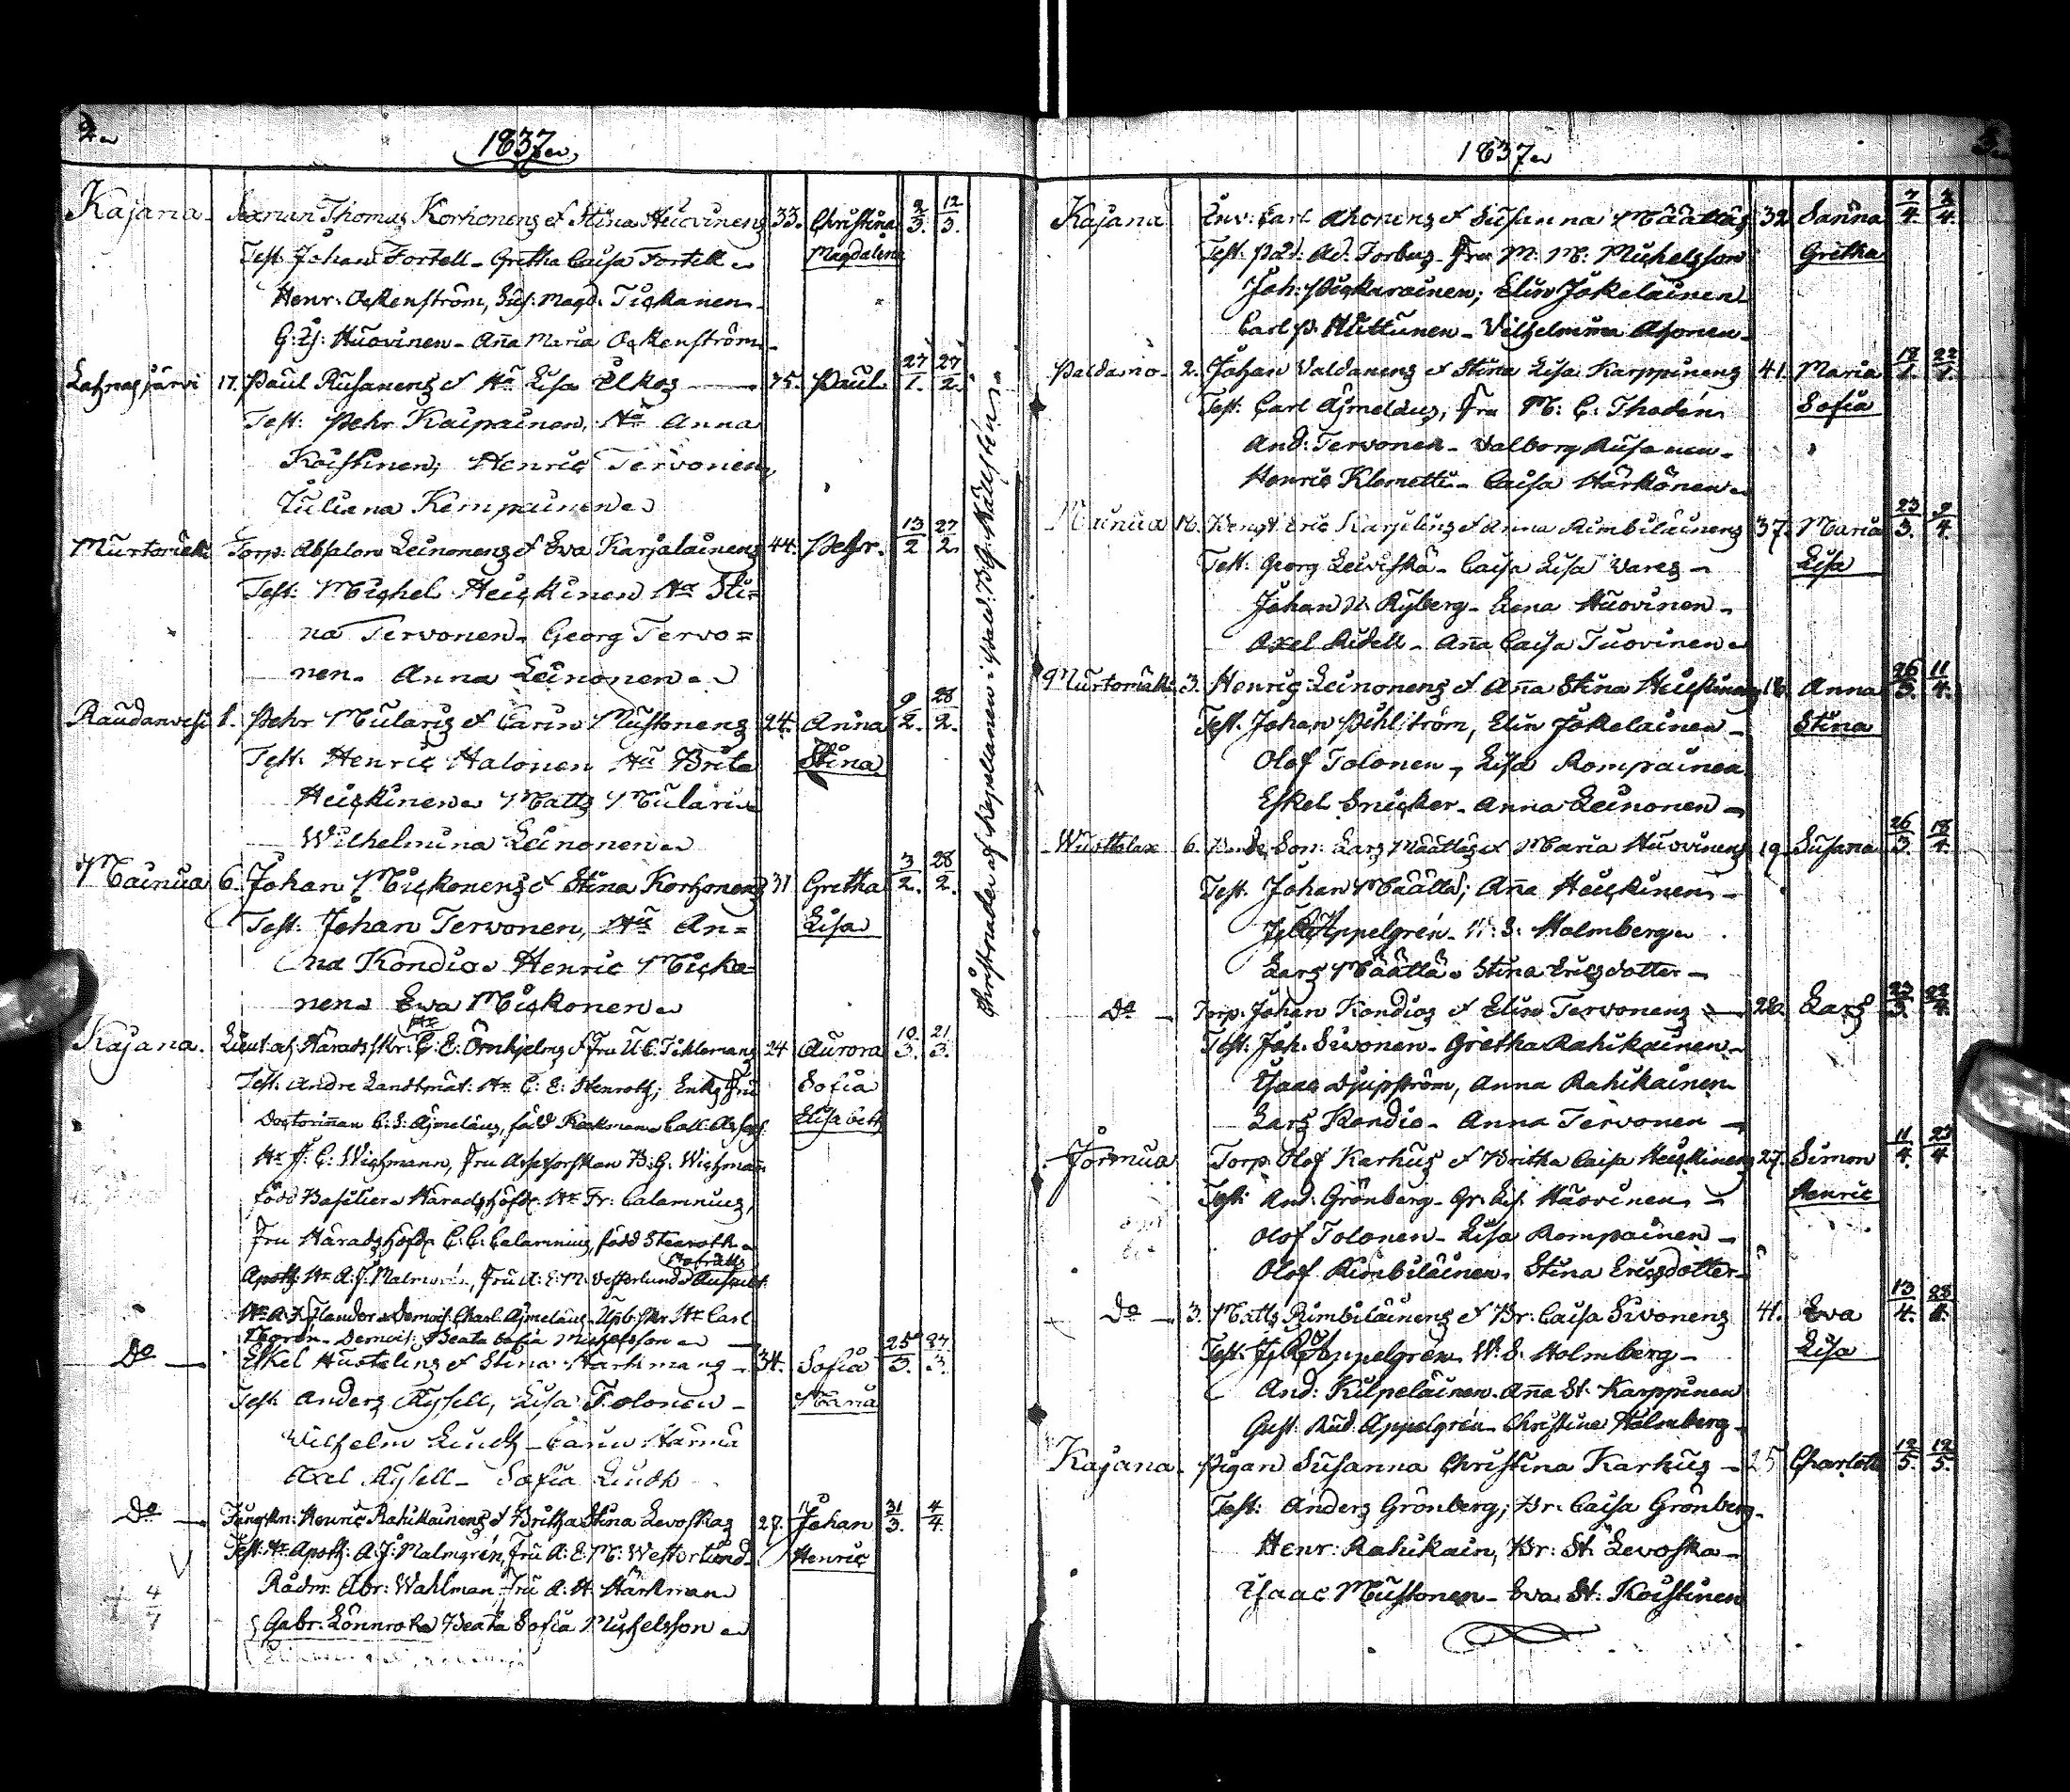 2.
1837.
Kajana. Thomas Korhonens & Stina Huovinens 33. Christina 9/3. 12/3.
Test. Johan Fortell - Gretha Caisa Fortell Magdalena
Henr: Ockenström, Sus: Magd. Tickanen
G: Hj: Huovinen - Aña Maria Ockenström
Lahnasjärvi 17. Paul Rusanens & Lisa Elkos 35. Paul 27/1. 27/2.
Test: Pehr Kaipainen, Anna
Koistinen; Henric Tervonen,
Juliana Kemppainen
Murtomäki Torp. Absalon Leinonens & Ewa Karjalainens 44. Pehr. 13/2 27/2
Test: Michel Heickinen Sti=
na Tervonen. Georg Tervo=
nen. Anna Leinonen
Raudanvesi 8. Pehr Mularis & Carin Mustonens 24. Anna 9/2. 28/2.
Test. Henric Halonen Brita Stina
Heickinen Matts Mulari
Wilhelmina Leinonen
Mainua 6. Johan Mickonens & Stina Korhonens 31 Gretha 3/2. 28/2.
Test: Johan Tervonen, An= Lisa
na Kondio Henric Micko=
nen. Ewa Mickonen
Kajana. Lieut. och Häradsskr: C: E: Örnhjelms & Fru U: C: Ticklemans 24 Aurora 10/3. 21/3.
Test: Andre Landtmät: Hr C: E: Stenroth; Enke Fru Sofia
Doctorinnan C: S: Ajmeläus, född Coll: Assess: Elisabeth
Hr F: C: Wichmann, Fru Assessorskan B: G: Wichmann
född Basilier Häradshöfd. Hr Fr: Calamnius,
Fru Häradshöfd. C: C: Calamnius, född Stenroth
Hofrätts
Apoth. Hr A: J: Malmgrén, Fru A: E: M: Westerlund Auscult:
Hr A: F: Demois: Charl. Ajmeläus Hr Carl
Thorén - Demois. Beata Sofia Michelsson
Do Eskel Hustelins & Stina Harkmans 34. Sofia 25/3. 27/3.
Test. Anders Kysell, Lisa Tolonen Maria
Wilhelm Lindh - Carin Härmä
Axel Kysell - Sofia Lindh
Do Henric Rahikainens & Britha Stina Levoskas 27. Johan 31/3. 4/4.
Test: Hr Apoth: A: J: Malmgrén, Fru A: E: M: Westerlund Henric
Rådm: Abr: Wahlman, Fru A: H: Harkman
+ 4/7 Gabr. Lönnroth Beata Sofia Michelsson
1837.
Kajana Inv: Carl Ahonens & Susanna Määttäs 32 Sanna 7/4. 7/4.
Test. Ad. Forbus - Fru M: M: Michelsson Gretha
Joh: Pickarainen; Elin Jokelainen
Carl P. Huttunen - Vilhelmina Ahonen
Paldamo 2. Johan Valdanens & Stina Lisa Karppinens 41. Maria
Test: Carl Ajmeläus, Fru M: C: Thodén Sofia
And: Tervonen - Valborg Rusanen
Henric Klemetti - Caisa Härkönen
Mainua 16. Bengt Eric Karjelins & Anna Kimbiläinens 37. Maria 23/3. 9/4.
Test: Georg Leiviskä - Caisa Lisa Wares Lisa
Johan N. Ryberg - Lena Huovinen
Axel Ridell - Aña Caisa Tuovinen
Murtomäki 3. Henric Leinonens & Aña Stina Heickinens 18. Anna 26/3. 11/4.
Test. Johan Pihlström, Elin Jokelainen Stina
Olof Tolonen, Lisa Rompainen
Eskel Snicker - Anna Leinonen
Wuottolax 6. Bonde Son: Lars Määttäs & Maria Huovinens 19. Susana 26/3. 18/4.
Test. Johan Määttä; Aña Heickinen
Appelgrén - W: S: Holmberg
Lars Määttä Stina Ericsdotter
Do Torp. Johan Kondios & Elin Tervonens 28. Lars 23/3. 22/4.
Test: Joh. Sivonen - Gretha Rahikainen
Isaac Djupström, Anna Rahikainen
Lars Kondio - Anna Tervonen
Jormua Torp. Olof Karhus & Britha Caisa Heickinens 27. Simon 11/4. 23/4
Test: And: Grönberg - Gr. Lis. Huovinen Henric
Olof Tolonen - Lisa Rompainen
Olof Kimbiläinen. Stina Ericsdotter
Do 3. Matts Kimbiläinens & Br: Caisa Sivonens 41. Ewa 13/4. 23/4.
Test: Appelgrén W: S: Holmberg Lisa
And: Kilpeläinen. Aña St. Karppinen
Gust. Rud. Appelgrén - Christina Holmberg
Kajana. Pigan Susanna Christina Karhus 25 Charlotta 12/5. 12/5.
Test: Anders Grönberg; Br: Caisa Grönberg
Henr: Rahikain, Br: St: Levoska
Isaac Mustonen - Ewa St: Koistinen